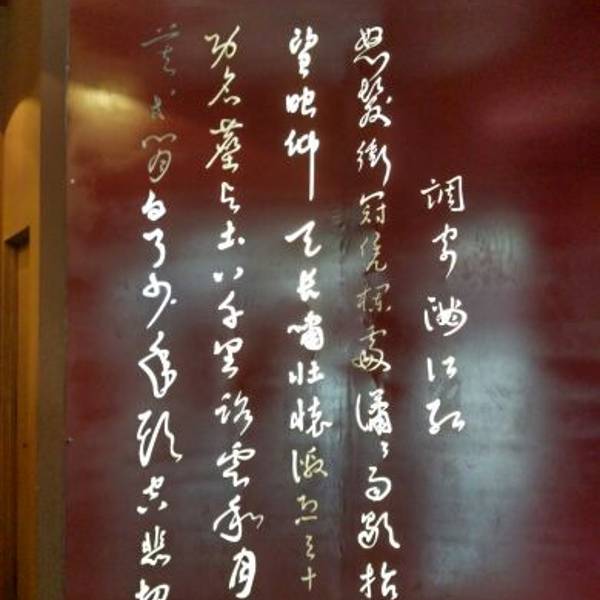 调寄满江红
怒发冲冠凭栏处潇潇雨歇抬
望眼仰天长啸壮怀激烈三十
功名尘与土八千里路云和月
莫等闲白了少年头空悲切